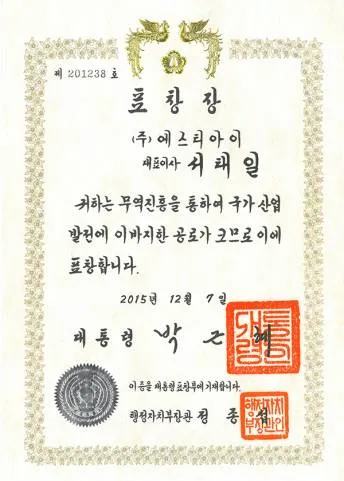 제 201238 호
표 창 장
(주) 에스티아이
대표이사 서태일
귀하는 무역진흥을 통하여 국가 산업
발전에 이바지한 공로가 크므로 이에
표창합니다.
2015년 12월 7일
대통령 박근혜
대통령
이 증을 대통령표창부에 기재합니다.
행정자치부장관 정종섭
행정자치
부장관인